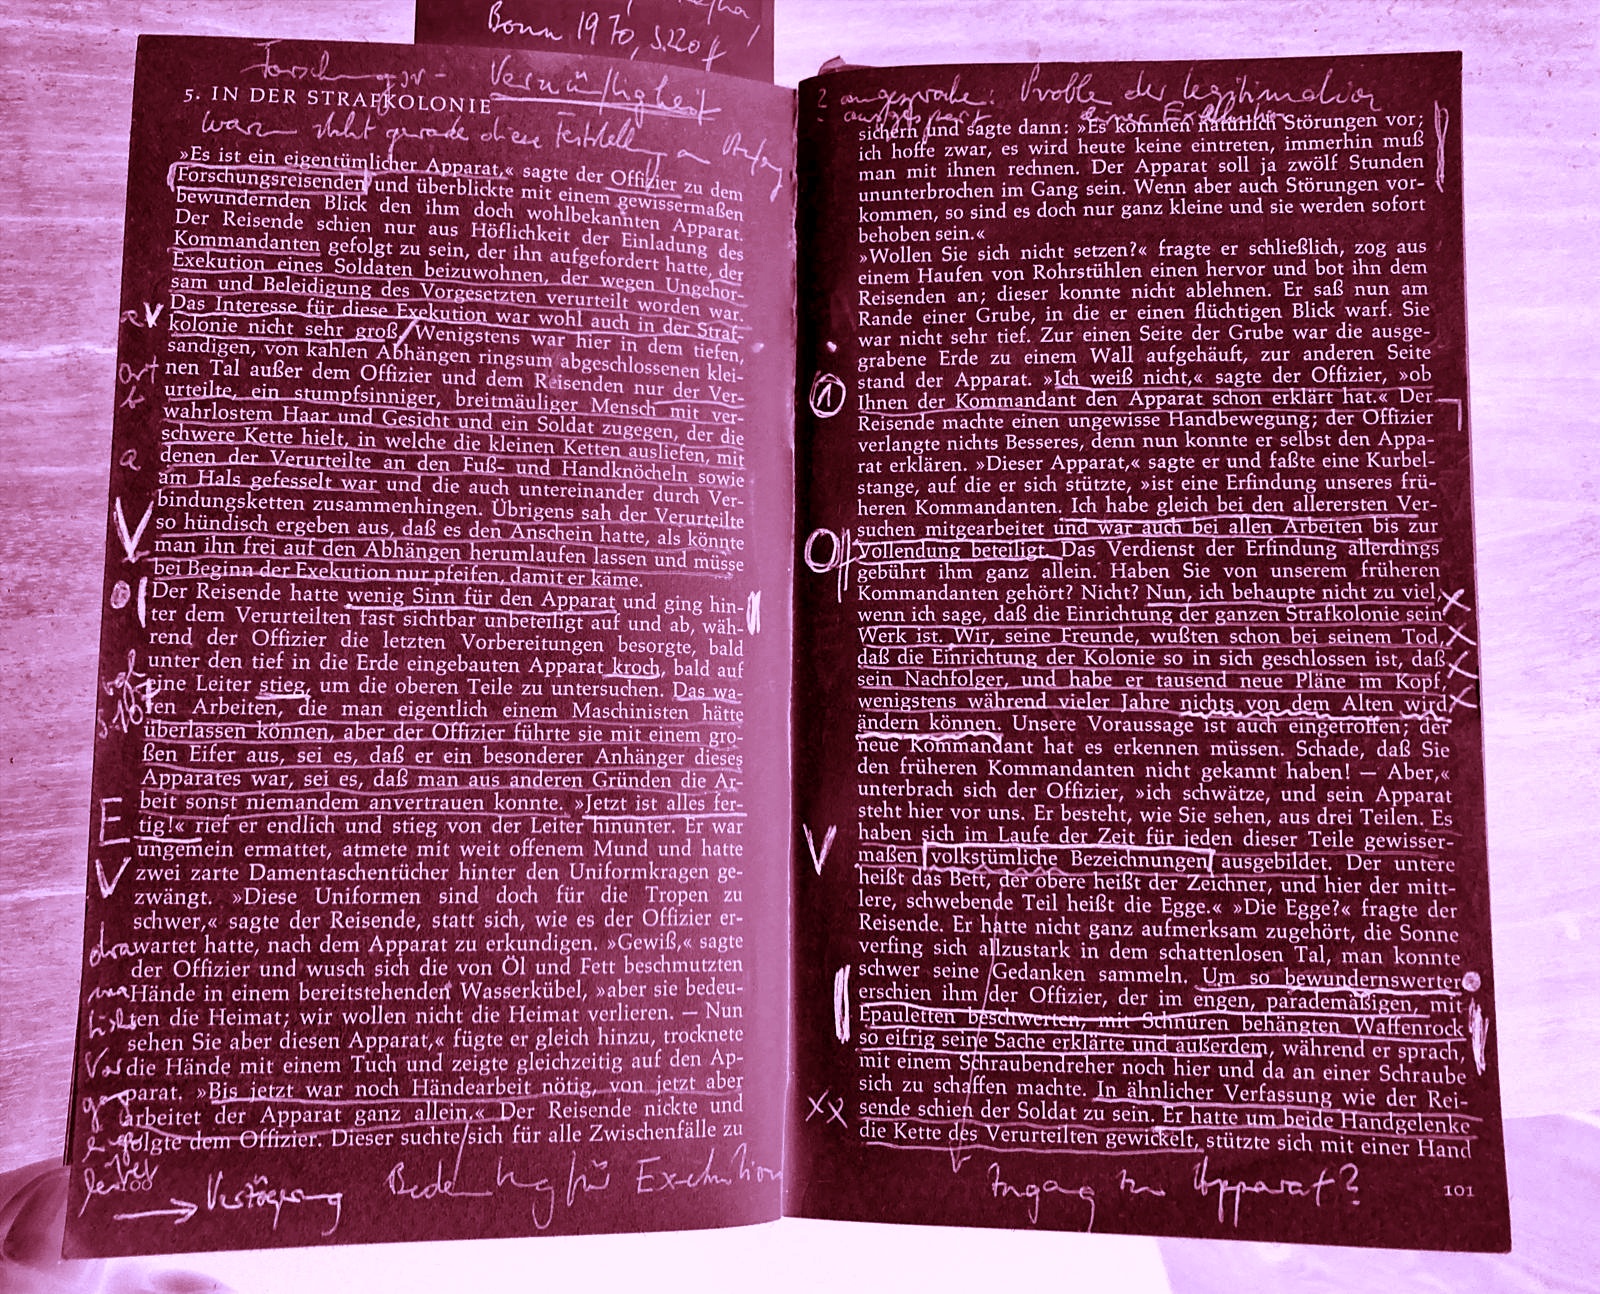 Bonn 1970, S. 220 ff
Forschungsr- Vernünftigkeit
5. IN DER STRAFKOLONIE
warum steht gerade diese Feststellung am Anfang
»Es ist ein eigentümlicher Apparat,« sagte der Offizier zu dem
Forschungsreisenden und überblickte mit einem gewissermaßen
bewundernden Blick den ihm doch wohlbekannten Apparat.
Der Reisende schien nur aus Höflichkeit der Einladung des
Kommandanten gefolgt zu sein, der ihn aufgefordert hatte, der
Exekution eines Soldaten beizuwohnen, der wegen Ungehor-
sam und Beleidigung des Vorgesetzten verurteilt worden war.
Das Interesse für diese Exekution war wohl auch in der Straf-
kolonie nicht sehr groß. Wenigstens war hier in dem tiefen,
sandigen, von kahlen Abhängen ringsum abgeschlossenen klei-
nen Tal außer dem Offizier und dem Reisenden nur der Ver-
urteilte, ein stumpfsinniger, breitmäuliger Mensch mit ver-
wahrlostem Haar und Gesicht und ein Soldat zugegen, der die
schwere Kette hielt, in welche die kleinen Ketten ausliefen, mit
denen der Verurteilte an den Fuß- und Handknöcheln sowie
am Hals gefesselt war und die auch untereinander durch Ver-
bindungsketten zusammenhingen. Übrigens sah der Verurteilte
so hündisch ergeben aus, daß es den Anschein hatte, als könnte
man ihn frei auf den Abhängen herumlaufen lassen und müsse
bei Beginn der Exekution nur pfeifen, damit er käme.
Der Reisende hatte wenig Sinn für den Apparat und ging hin-
ter dem Verurteilten fast sichtbar unbeteiligt auf und ab, wäh-
rend der Offizier die letzten Vorbereitungen besorgte, bald
unter den tief in die Erde eingebauten Apparat kroch, bald auf
eine Leiter stieg, um die oberen Teile zu untersuchen. Das wa-
ren Arbeiten, die man eigentlich einem Maschinisten hätte
überlassen können, aber der Offizier führte sie mit einem gro-
ßen Eifer aus, sei es, daß er ein besonderer Anhänger dieses
Apparates war, sei es, daß man aus anderen Gründen die Ar-
beit sonst niemandem anvertrauen konnte. »Jetzt ist alles fer-
tig!« rief er endlich und stieg von der Leiter hinunter. Er war
ungemein ermattet, atmete mit weit offenem Mund und hatte
zwei zarte Damentaschentücher hinter den Uniformkragen ge-
zwängt. »Diese Uniformen sind doch für die Tropen zu
schwer,« sagte der Reisende, statt sich, wie es der Offizier er-
wartet hatte, nach dem Apparat zu erkundigen. »Gewiß,« sagte
der Offizier und wusch sich die von Öl und Fett beschmutzten
Hände in einem bereitstehenden Wasserkübel, »aber sie bedeu-
ten die Heimat; wir wollen nicht die Heimat verlieren. — Nun
sehen Sie aber diesen Apparat,« fügte er gleich hinzu, trocknete
die Hände mit einem Tuch und zeigte gleichzeitig auf den Ap-
parat. »Bis jetzt war noch Händearbeit nötig, von jetzt aber
arbeitet der Apparat ganz allein.« Der Reisende nickte und
folgte dem Offizier. Dieser suchte sich für alle Zwischenfälle zu
100
→ Verzögerung Bedeutung für Exekution
a V
Ort
b
a
V
vgl
E
V
? angesprochen: Problem der Legitimation
einer Exekution
sichern und sagte dann: »Es kommen natürlich Störungen vor;
ich hoffe zwar, es wird heute keine eintreten, immerhin muß
man mit ihnen rechnen. Der Apparat soll ja zwölf Stunden
ununterbrochen im Gang sein. Wenn aber auch Störungen vor-
kommen, so sind es doch nur ganz kleine und sie werden sofort
behoben sein.«
»Wollen Sie sich nicht setzen?« fragte er schließlich, zog aus
einem Haufen von Rohrstühlen einen hervor und bot ihn dem
Reisenden an; dieser konnte nicht ablehnen. Er saß nun am
Rande einer Grube, in die er einen flüchtigen Blick warf. Sie
war nicht sehr tief. Zur einen Seite der Grube war die ausge-
grabene Erde zu einem Wall aufgehäuft, zur anderen Seite
stand der Apparat. »Ich weiß nicht,« sagte der Offizier, »ob
Ihnen der Kommandant den Apparat schon erklärt hat.« Der
Reisende machte einen ungewisse Handbewegung; der Offizier
verlangte nichts Besseres, denn nun konnte er selbst den Appa-
rat erklären. »Dieser Apparat,« sagte er und faßte eine Kurbel-
stange, auf die er sich stützte, »ist eine Erfindung unseres frü-
heren Kommandanten. Ich habe gleich bei den allerersten Ver-
suchen mitgearbeitet und war auch bei allen Arbeiten bis zur
Vollendung beteiligt. Das Verdienst der Erfindung allerdings
gebührt ihm ganz allein. Haben Sie von unserem früheren
Kommandanten gehört? Nicht? Nun, ich behaupte nicht zu viel,
wenn ich sage, daß die Einrichtung der ganzen Strafkolonie sein
Werk ist. Wir, seine Freunde, wußten schon bei seinem Tod,
daß die Einrichtung der Kolonie so in sich geschlossen ist, daß
sein Nachfolger, und habe er tausend neue Pläne im Kopf,
wenigstens während vieler Jahre nichts von dem Alten wird
ändern können. Unsere Voraussage ist auch eingetroffen; der
neue Kommandant hat es erkennen müssen. Schade, daß Sie
den früheren Kommandanten nicht gekannt haben! — Aber,«
unterbrach sich der Offizier, »ich schwätze, und sein Apparat
steht hier vor uns. Er besteht, wie Sie sehen, aus drei Teilen. Es
haben sich im Laufe der Zeit für jeden dieser Teile gewisser-
maßen volkstümliche Bezeichnungen ausgebildet. Der untere
heißt das Bett, der obere heißt der Zeichner, und hier der mitt-
lere, schwebende Teil heißt die Egge.« »Die Egge?« fragte der
Reisende. Er hatte nicht ganz aufmerksam zugehört, die Sonne
verfing sich allzustark in dem schattenlosen Tal, man konnte
schwer seine Gedanken sammeln. Um so bewundernswerter
erschien ihm der Offizier, der im engen, parademäßigen, mit
Epauletten beschwerten, mit Schnüren behängten Waffenrock
so eifrig seine Sache erklärte und außerdem, während er sprach,
mit einem Schraubendreher noch hier und da an einer Schraube
sich zu schaffen machte. In ähnlicher Verfassung wie der Rei-
sende schien der Soldat zu sein. Er hatte um beide Handgelenke
die Kette des Verurteilten gewickelt, stützte sich mit einer Hand
Zugang zum Apparat?
101
1
Off
V
XX